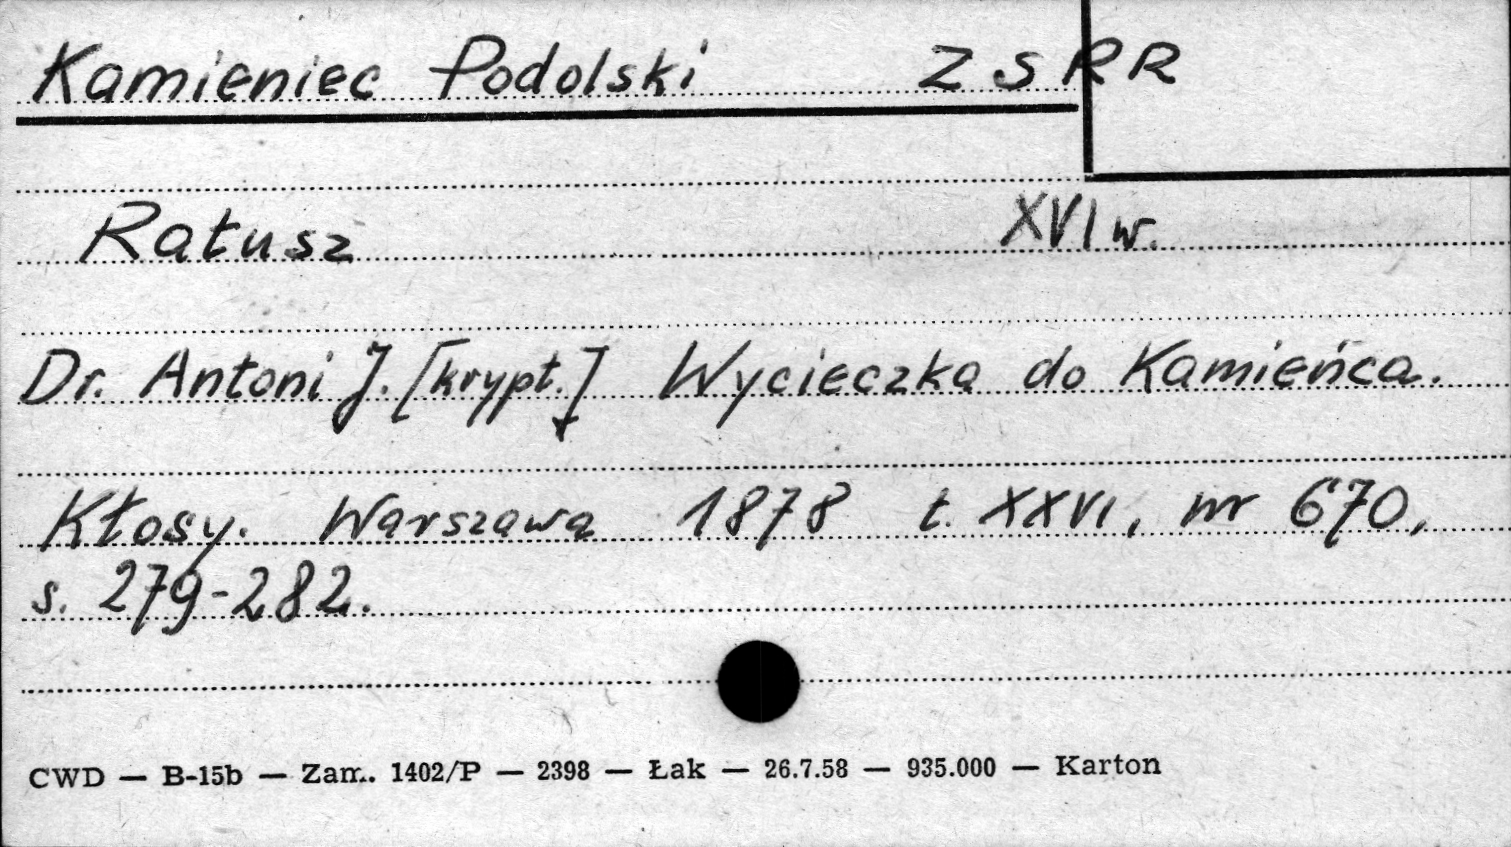 Kamieniec Podolski ZSRR
Ratusz XVI w.
Dr. Antoni J. [krypt.] Wycieczka do Kamieńca.
Kłosy. Warszawa 1878 t. XXVI, nr 670,
s. 279-282.
CWD — B-15b — Zam. 1402/P — 2398 — Łak — 26.7.58 — 935.000 — Karton